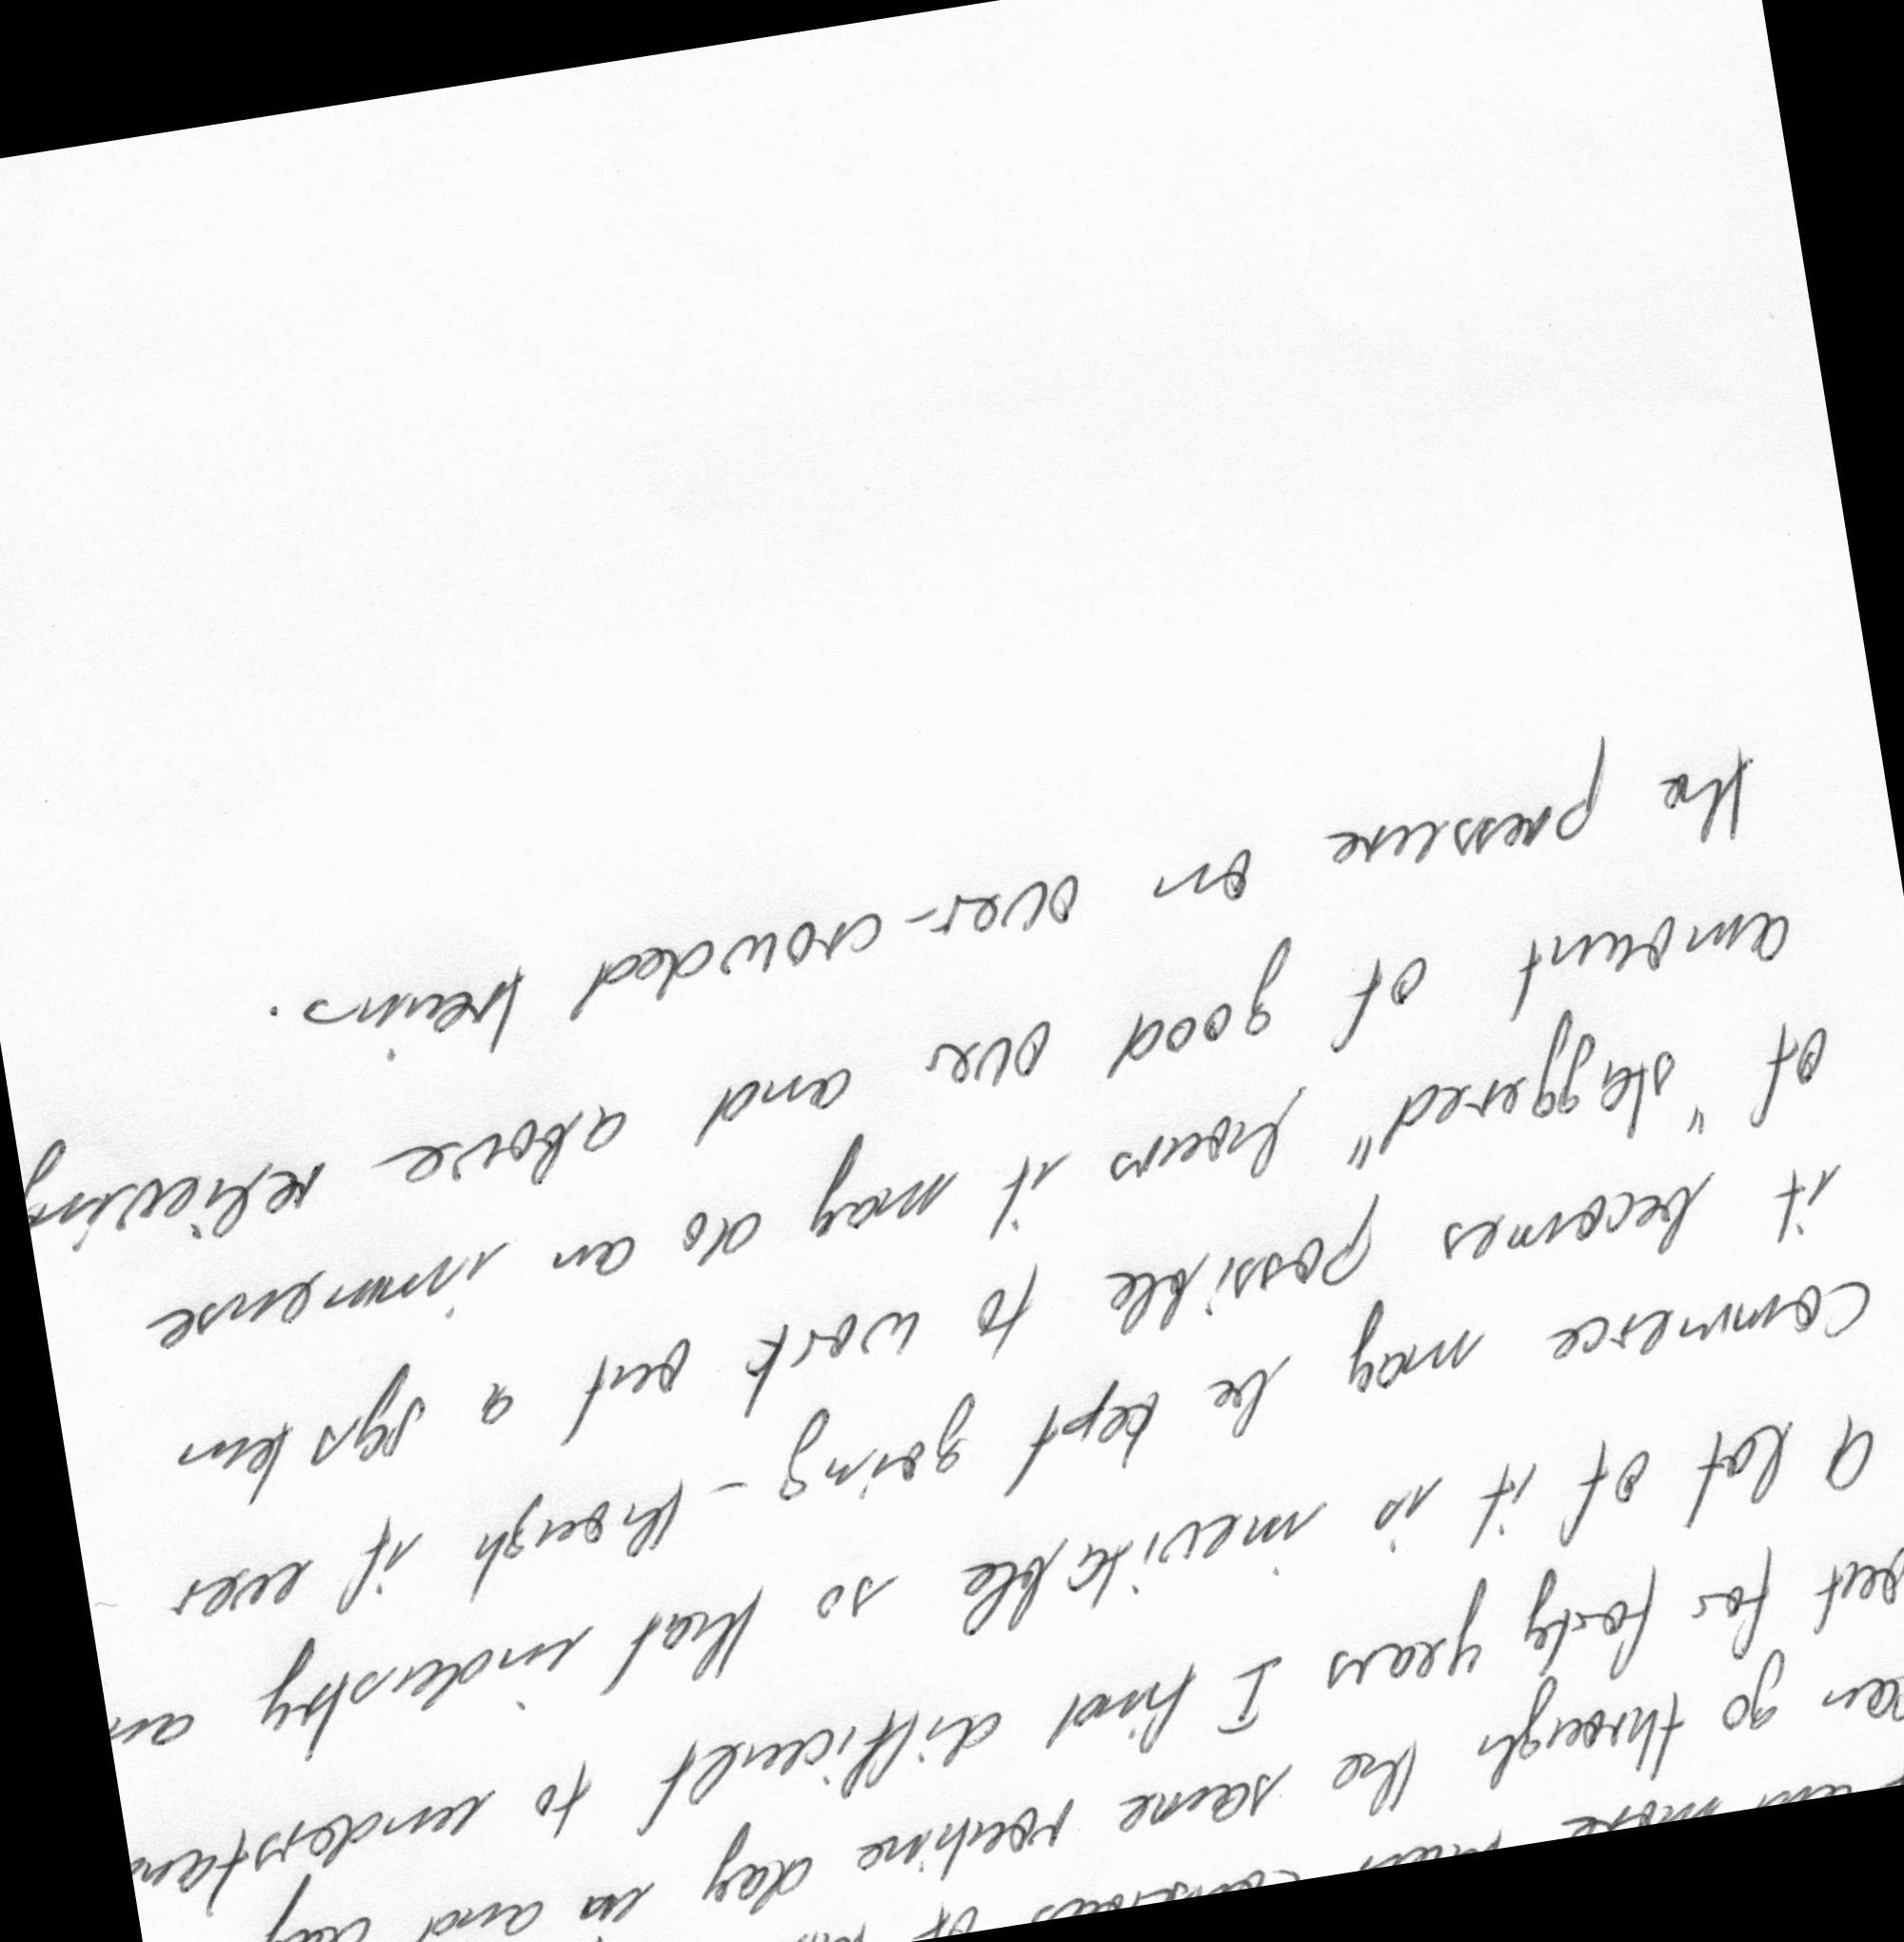 more than conscious of
can go through the same routine day in and day
out for forty years I find difficult to understand
A lot of it is inevitable so that industry an
commerce may be kept going - though if ever
it becomes possible to work out a system
of "staggered" hours it may do an immense
amount of good over and above relieving
the pressure on over-crowded trains.